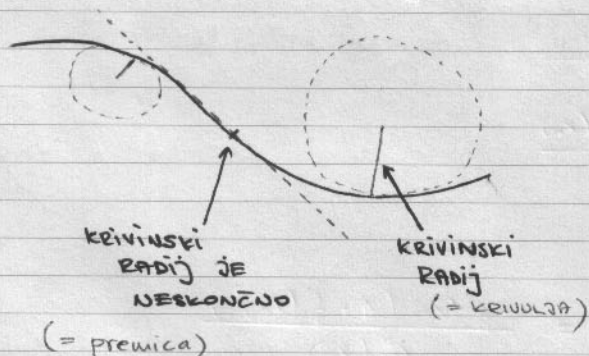 KRIVINSKI
RADIJ JE
NESKONČNO
(= premica)
KRIVINSKI
RADIJ
(= KRIVULJA)